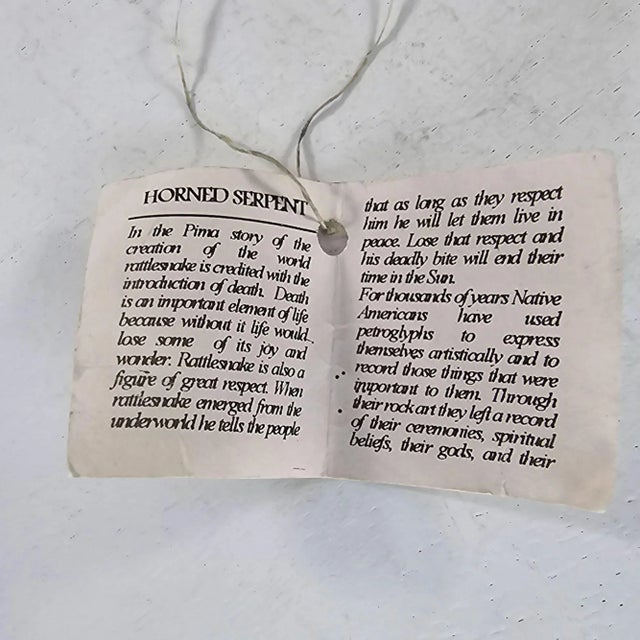 HORNED SERPENT
In the Pima story of the
creation of the world
rattlesnake is credited with the
introduction of death. Death
is an important element of life
because without it life would
lose some of its joy and
wonder. Rattlesnake is also a
figure of great respect. When
rattlesnake emerged from the
underworld he tells the people
that as long as they respect
him he will let them live in
peace. Lose that respect and
his deadly bite will end their
time in the Sun.
For thousands of years Native
Americans have used
petroglyphs to express
themselves artistically and to
record those things that were
important to them. Through
their rock art they left a record
of their ceremonies, spiritual
beliefs, their gods, and their